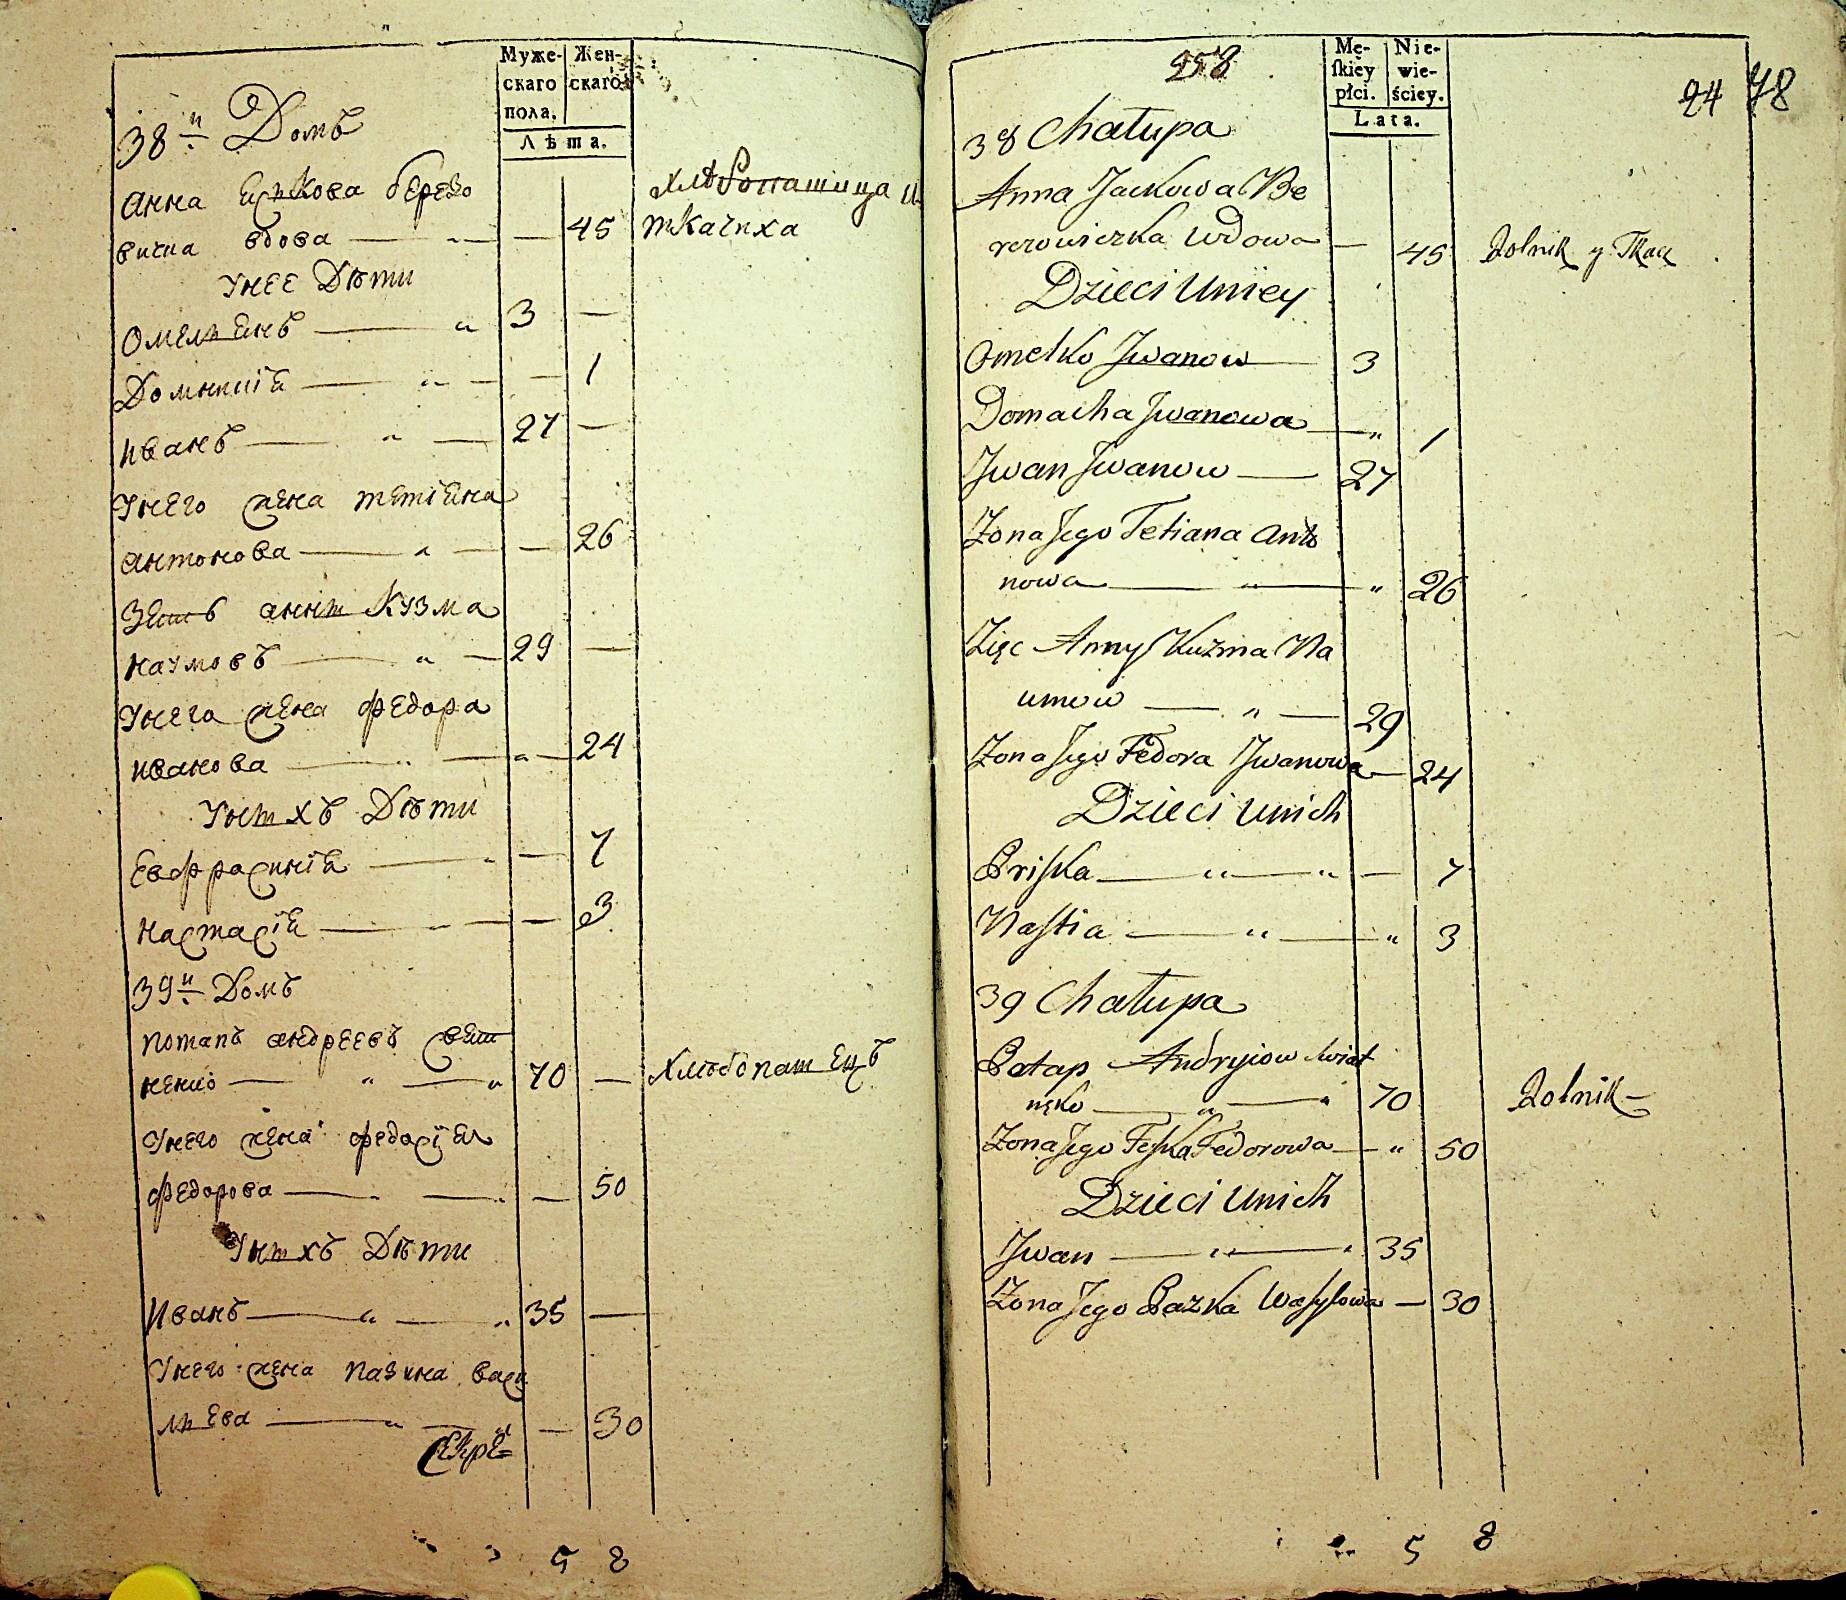 Муже-
скаго
пола.
Жен-
скаго
Лѣта.
38й Домъ
Анна Яцкова березо
вична вдова — „ — — 45 хлѣбопашица и
ткачиха
Унее Дѣти
Омелянъ — „ 3 —
Домникія — „ — — 1
Иванъ — „ — 27 —
Унего жена Тетіяна
антонова — „ — — 26
Зять анны Кузма
наумовъ — „ — 29 —
Унего жена федора
иванова — „ — „ — 24
Унихъ Дѣти
Евфрасинія — „ — 7
настасія — „ — — 3
39й Домъ
потапъ андреевъ свят
ненко — „ — „ 70 — хлѣбопашецъ
Унего жена федосія
федорова — „ — „ — 50
Унихъ Дѣти
Иванъ — „ — „ 35 —
Унего жена пазина васи
лева — „ — — 30
Секре=
5 8
258
Mę-
skiey
płci.
Nie-
wie-
ściey.
Lata.
24 78
38 Chałupa
Anna Jackowa Be
rezowiczka Wdowa — 45 Rolnik y Tkacz
Dzieci Uniey
Omelko Jwanow — 3
Domacha Jwanowa — „ 1
Jwan Jwanow — 27
Zona Jego Tetiana Anto
nowa — „ — „ 26
Zięc Anny Kuzma Na
umow — „ — 29
Zona Jego Fedora Jwanowa — 24
Dzieci Unich
Priska — „ — „ — 7
Nastia — „ — „ 3
39 Chałupa
Patap Andryiow Swiat
nęko — „ — „ 70 Rolnik —
Zona Jego Feska Fedorowa — „ 50
Dzieci Unich
Jwan — „ — „ 35
Zona Jego Pazka Wasylowa — 30
5 8